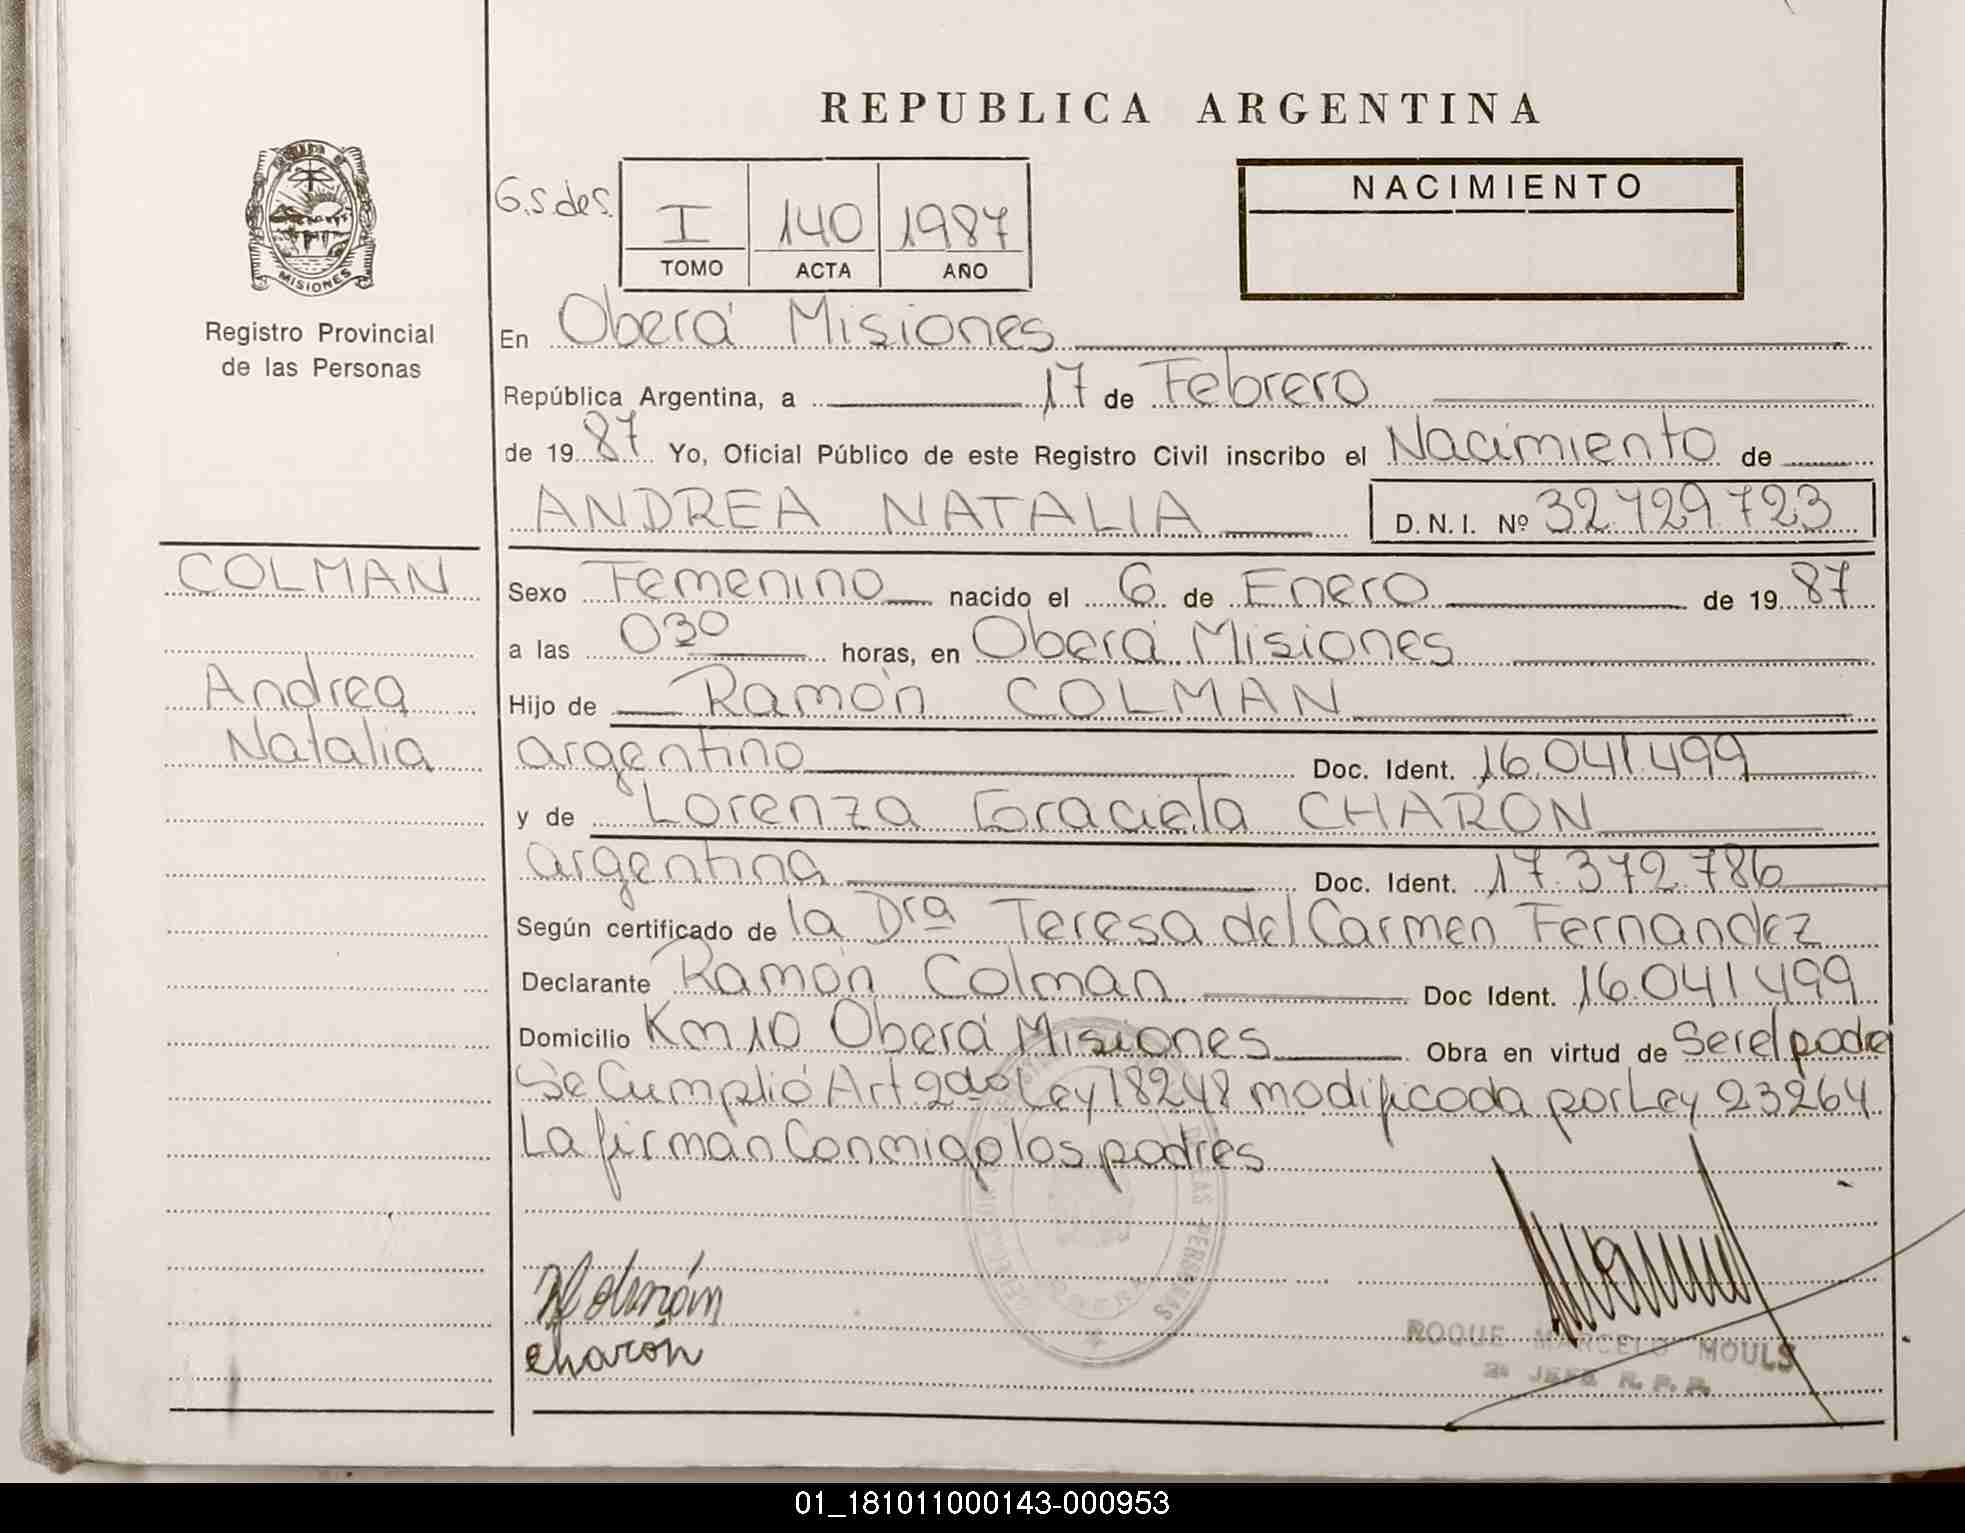 REPUBLICA ARGENTINA
MISIONES
Registro Provincial
de las Personas
G.S.des.
I 140 1987
TOMO ACTA AÑO
NACIMIENTO
En Oberá Misiones
República Argentina, a 17 de Febrero
de 19 87 Yo, Oficial Público de este Registro Civil inscribo el Nacimiento de
ANDREA NATALIA D.N.I. Nº 32.729.723
COLMAN
Andrea
Natalia
Sexo Femenino nacido el 6 de Enero de 19 87
a las 03º horas, en Oberá Misiones
Hijo de Ramón COLMAN
argentino Doc. Ident. 16.041.499
y de Lorenza Graciela CHARON
argentina Doc. Ident. 17.372.786
Según certificado de la Dra Teresa del Carmen Fernandez
Declarante Ramón Colman Doc Ident. 16.041.499
Domicilio Km 10 Oberá Misiones Obra en virtud de Ser el padre
Se Cumplió Art. 2do Ley 18248 modificada por Ley 23264
La firman Conmigo los padres
charón
DE LAS PERSONAS
ROQUE MARCELO MOULS
2º JEFE R. P. P.
01_181011000143-000953